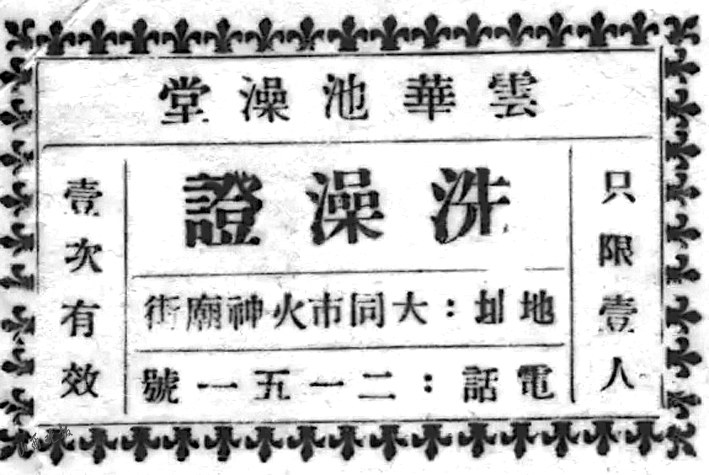 雲華池澡堂
只限壹人
洗澡證
地址：大同市火神廟街
電話：二一五一號
壹次有效